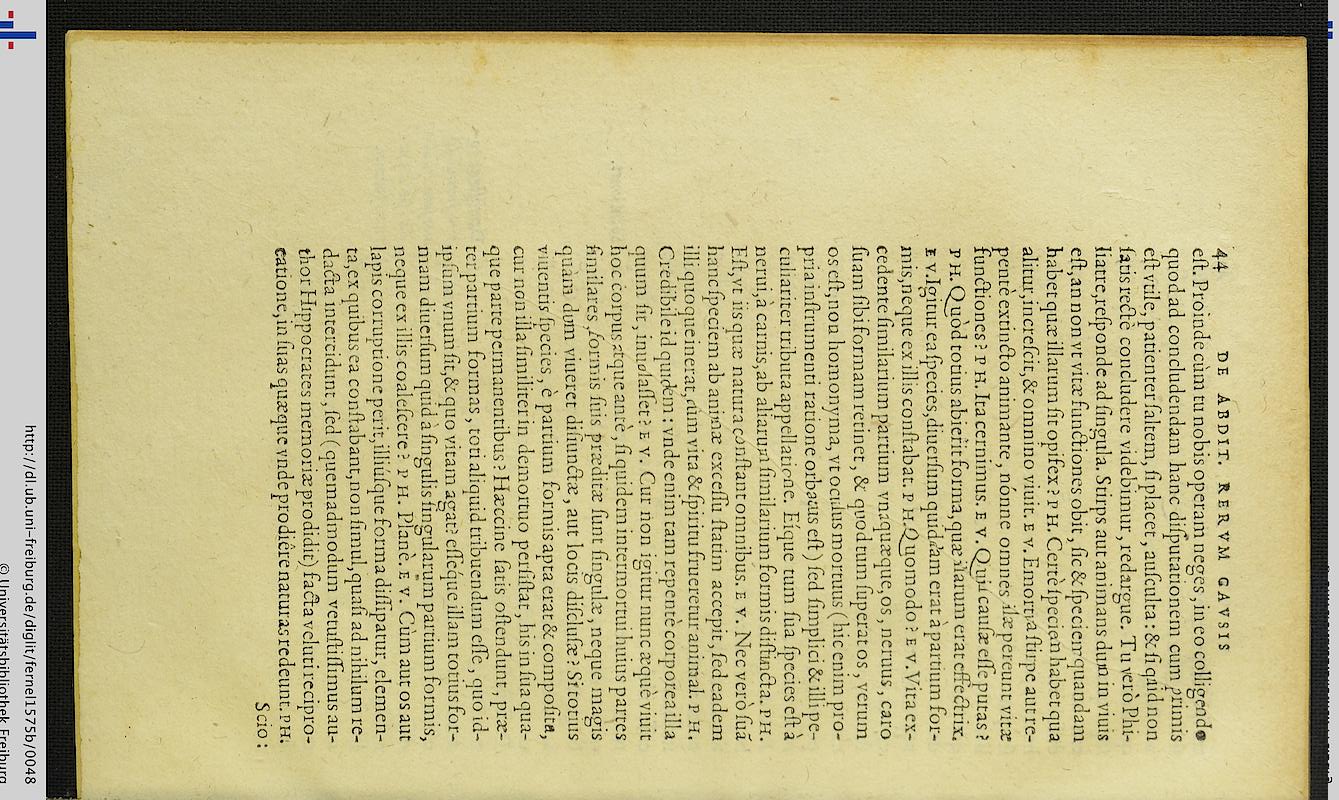 44 DE ABDIT. RERVM CAVSIS
est. Proinde cùm tu nobis operam neges, in eo colligendo
quod ad concludendam hanc disputationem cum primis
est vtile, patienter saltem, si placet, ausculta: & si quid non
satis rectè concludere videbimur, redargue. Tu verò Phi-
liatre, responde ad singula. Stirps aut animans dum in viuis
est, an non vt vitæ functiones obit, sic & speciem quandam
habet quæ illarum sit opifex? PH. Certè speciem habet qua
alitur, increscit, & omnino viuit. EV. Emortua stirpe aut re-
pentè extincto animante, nónne omnes illæ pereunt vitæ
functiones? PH. Ita cernimus. EV. Qui causæ esse putas?
PH. Quòd totius abierit forma, quæ illarum erat effectrix.
EV. Igitur ea species, diuersum quiddam erat à partium for-
mis, neque ex illis constabat. PH. Quomodo? EV. Vita ex-
cedente similarium partium vnaquæque, os, neruus, caro
suam sibi formam retinet, & quod tum superat os, verum
os est, non homonyma, vt oculus mortuus (hic enim pro-
pria instrumenti ratione orbatus est) sed simplici & illi pe-
culiariter tributa appellatione. Eíque tum sua species est à
nerui, à carnis, ab aliarum similarium formis distincta. PH.
Est, vt iis quæ natura constant omnibus. EV. Nec verò suā
hanc speciem ab animæ excessu statim accepit, sed eadem
illi quoque inerat, dum vita & spiritu frueretur animal. PH.
Credibile id quidem: vnde enim tam repentè corporea illa
quum sit, inuolasset? EV. Cur non igitur nunc æquè viuit
hoc corpus atque antè, siquidem intermortui huius partes
similares, formis suis præditæ sunt singulæ, neque magis
quàm dum viueret disiunctæ, aut locis disclusæ? Si totius
viuentis species, è partium formis apta erat & composita,
cur non illa similiter in demortuo persistat, his in sua qua-
que parte permanentibus? Hæccine satis ostendunt, præ-
ter partium formas, toti aliquid tribuendum esse, quo id-
ipsum vnum sit, & quo vitam agat? esséque illam totius for-
mam diuersum quid à singulis singularum partium formis,
neque ex illis coalescere? PH. Planè. EV. Cùm aut os aut
lapis corruptione perit, illiúsque forma dissipatur, elemen-
ta, ex quibus ea constabant, non simul, quasi ad nihilum re-
dacta intercidunt, sed (quemadmodum vetustissimus au-
thor Hippocrates memoriæ prodidit) facta veluti recipro-
catione, in suas quæque vnde prodiêre naturas redeunt. PH.
Scio:
http://dl.ub.uni-freiburg.de/diglit/fernel1575b/0048
© Universitätsbibliothek Freiburg